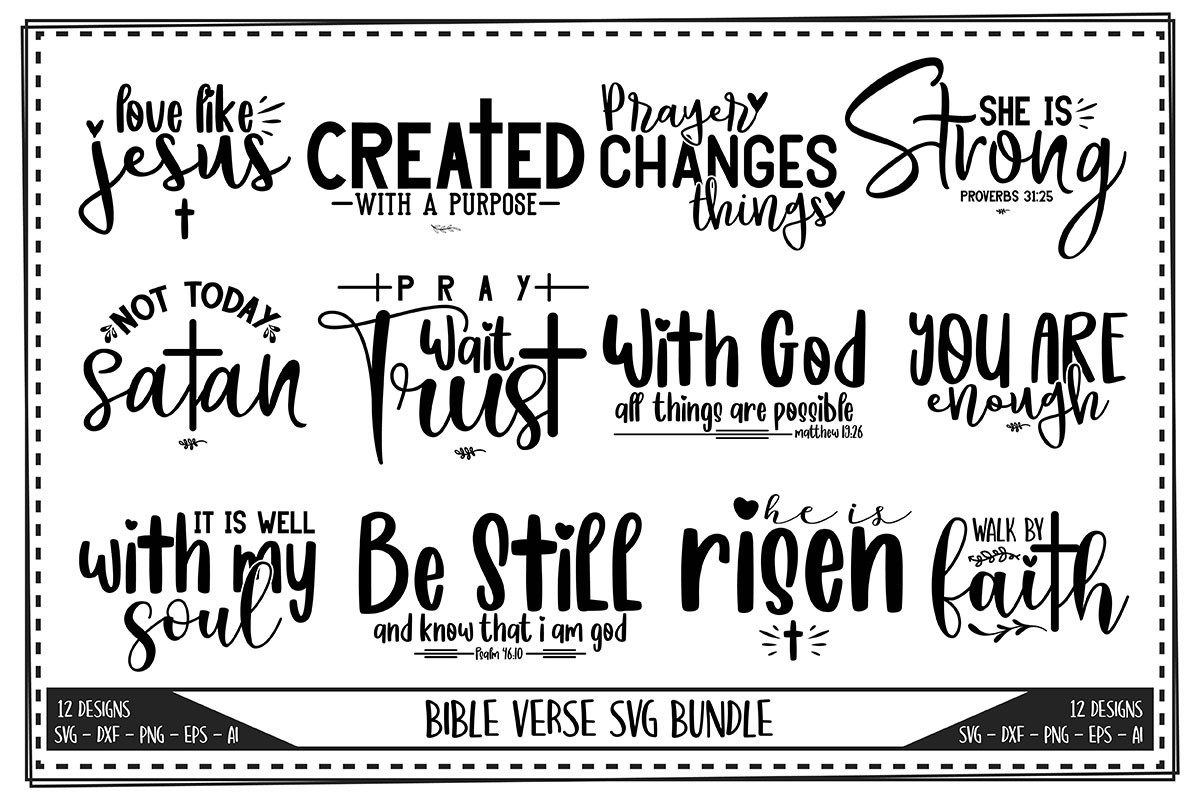 love like
jesus
CREATED
WITH A PURPOSE
Prayer
CHANGES
things
SHE IS
Strong
PROVERBS 31:25
NOT TODAY
satan
PRAY
Wait
Trust
With God
all things are possible
matthew 19:26
YOU ARE
enough
IT IS WELL
with my
soul
Be Still
and know that i am god
Psalm 46:10
he is
risen
WALK BY
faith
12 DESIGNS
SVG – DXF – PNG – EPS – AI
BIBLE VERSE SVG BUNDLE
12 DESIGNS
SVG – DXF – PNG – EPS – AI